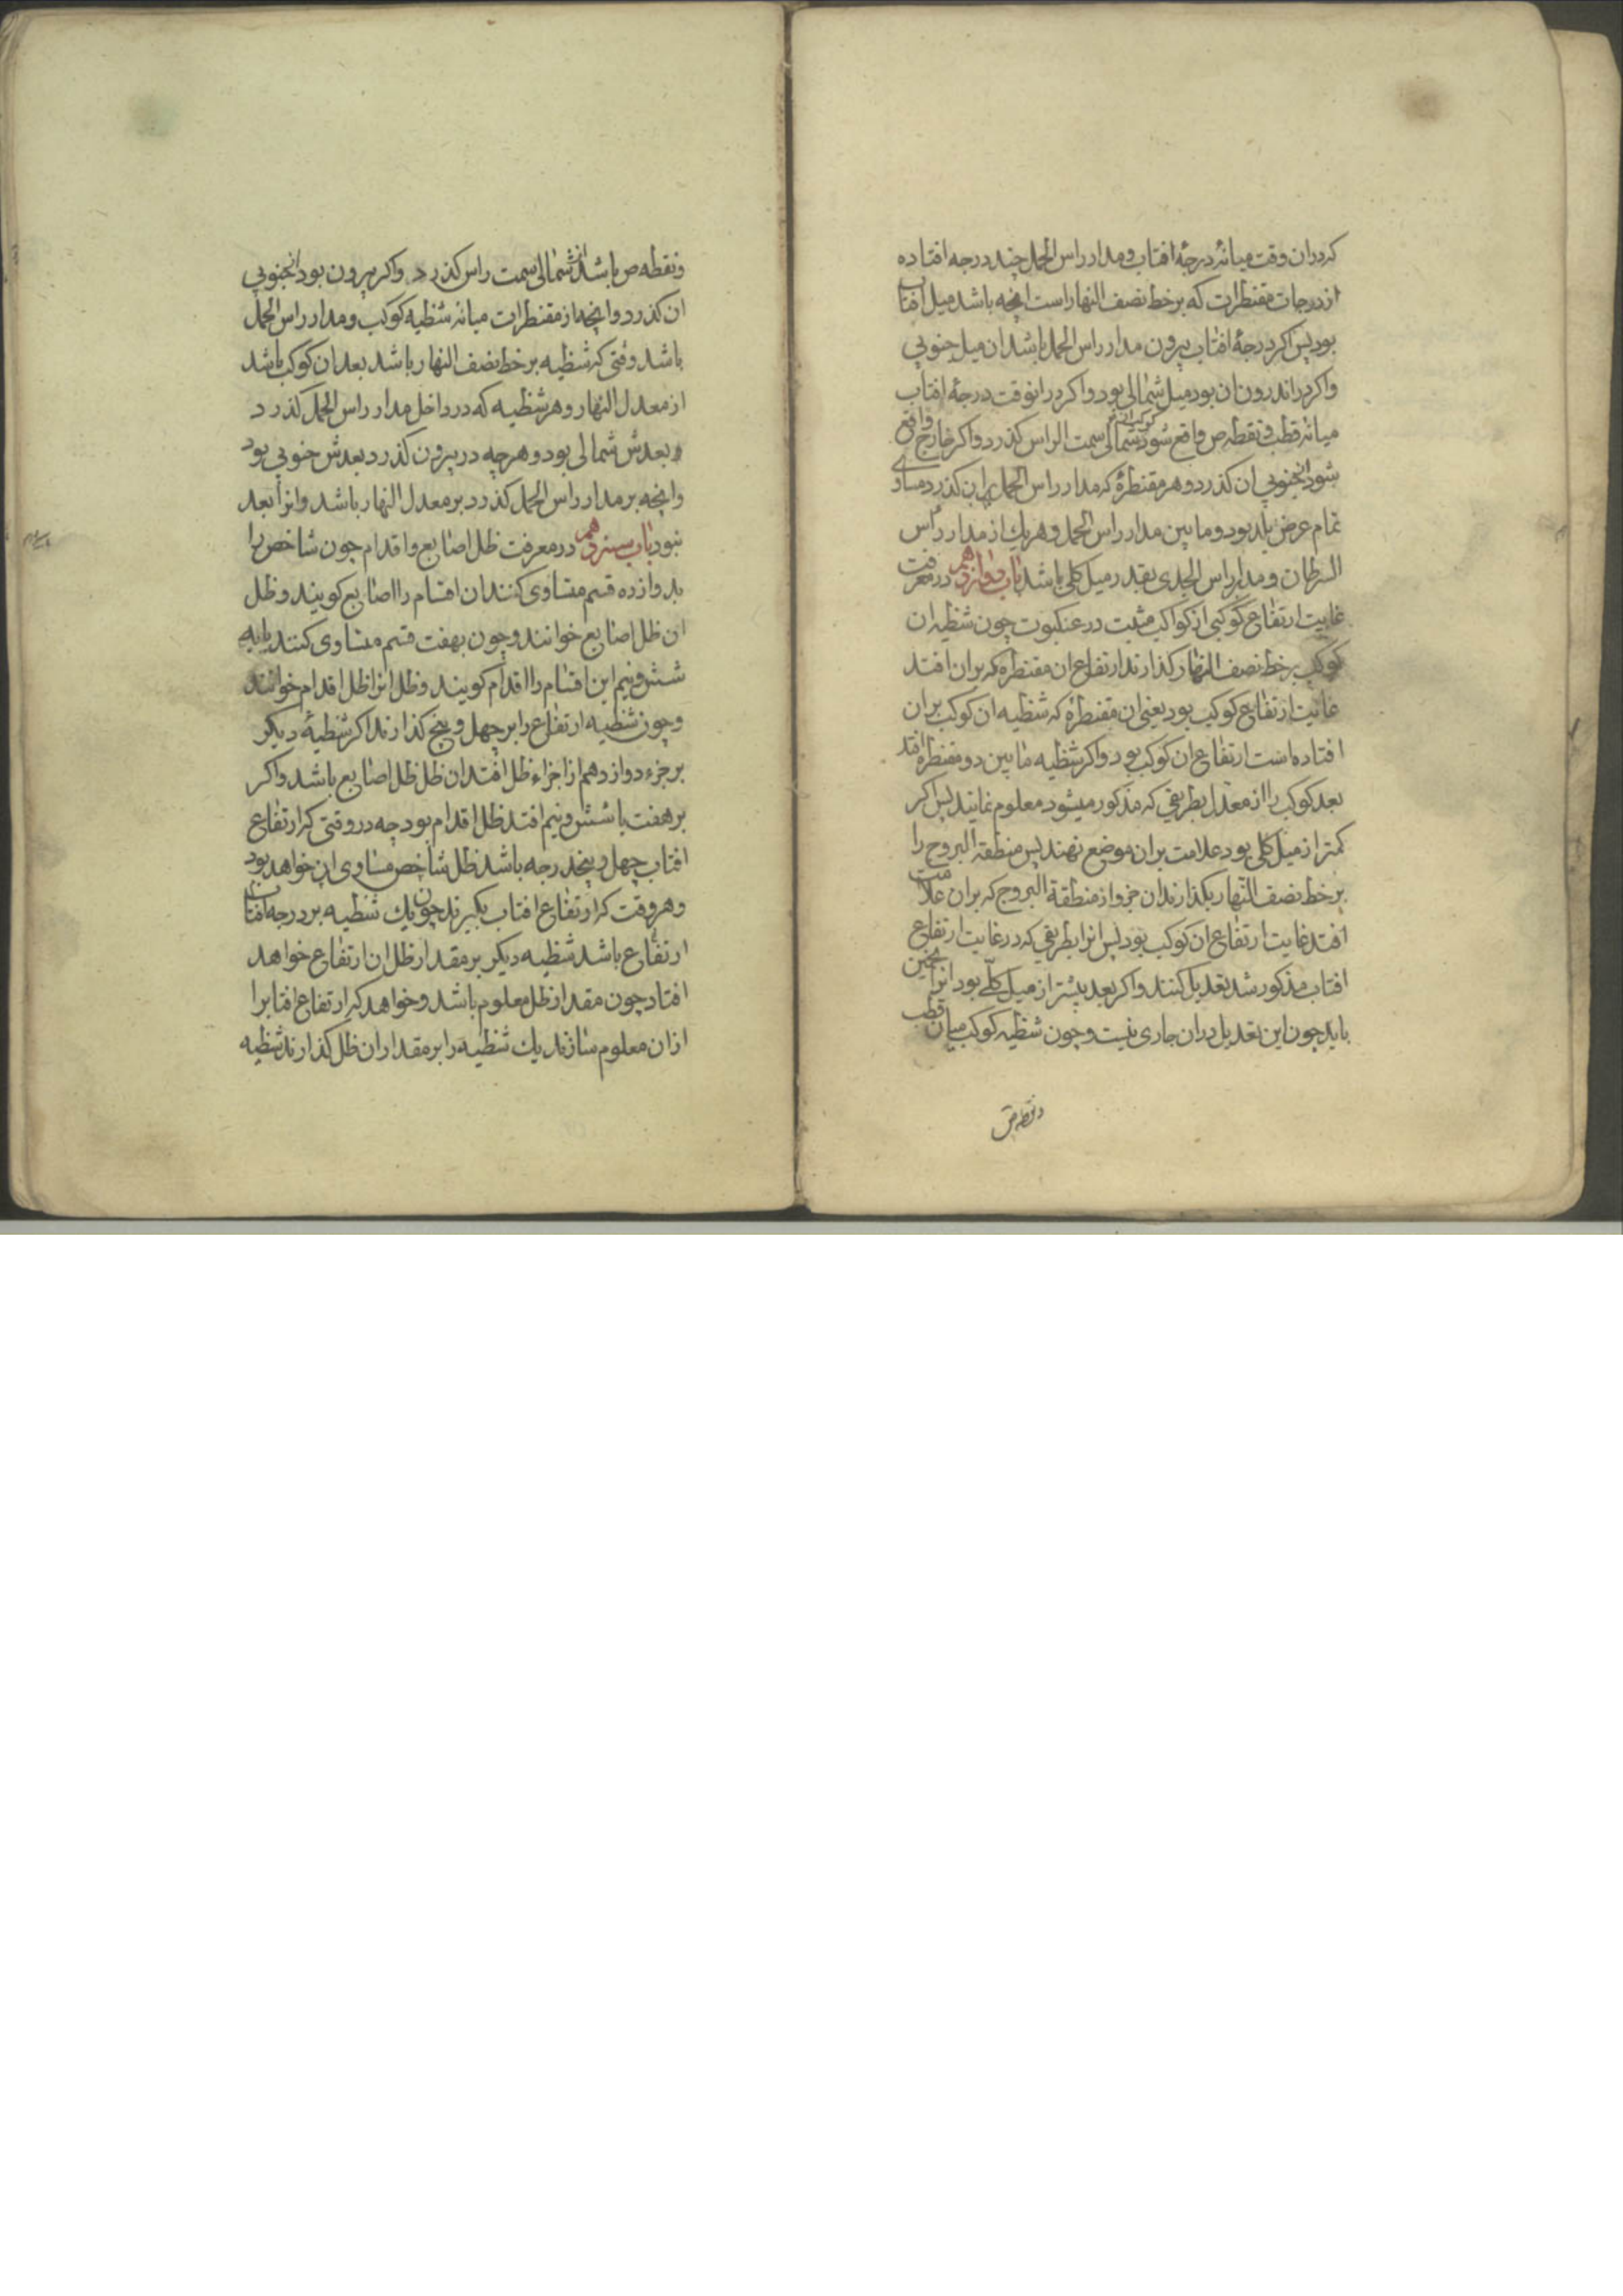 که دران وقت میانهٔ درجهٔ افتاب و مدار راس الحمل چند درجه افتاده
از درجات مقنطرات که بر خط نصف النهار است انچه باشد میل افتاب
بود پس اکر درجهٔ افتاب بیرون مدار راس الحمل باشد ان میل جنوبی
واکر در اندرون ان بود میل شمالی بود واکر درانوقت درجهٔ افتاب
میانه قطب و نقطه ص واقع شود از شمالی سمت الراس کذرد واکر خارج واقع
شود از جنوبی ان کذرد و هر مقنطرهٔ که مدار راس الحمل بران کذرد مساوی
تمام عرض بلد بود و ما بین مدار راس الحمل و هر یک از مدار راس
السرطان و مدار راس الجدی بقدر میل کلی باشد باب دوازدهم در معرفت
غایت ارتفاع کوکبی از کواکب مثبت در عنکبوت چون شظیه ان
کوکب بر خط نصف النهار کذارند ارتفاع ان مقنطره که بران افتد
غایت ارتفاع کوکب بود یعنی ان مقنطرهٔ که شظیه ان کوکب بران
افتاده است ارتفاع ان کوکب بود واکر شظیه ما بین دو مقنطره افتد
بعد کوکب را از معدل بطریقی که مذکور میشود معلوم نمایند پس اکر
کمتر از میل کلی بود علامت بران موضع نهند پس منطقة البروج را
بر خط نصف النهار بکذارند ان جزو از منطقة البروج که بران علامت
افتد غایت ارتفاع ان کوکب بود پس انرا بطریقی که در غایت ارتفاع
افتاب مذکور شد تعدیل کنند واکر بعد بیشتر از میل کلّی بود انرا تخمین
باید چون این تعدیل دران جاری نیست و چون شظیه کوکب میان قطب
و نقطه ص
و نقطه ص باشد از شمالی سمت راس کذرد واکر بیرون بود از جنوبی
ان کذرد و انچه از مقنطرات میانه شظیه کوکب و مدار راس الحمل
باشد وقتی که شظیه بر خط نصف النهار باشد بعد ان کوکب باشد
از معدل النهار و هر شظیه که در داخل مدار راس الحمل کذرد
بعدش شمالی بود و هرچه در بیرون کذرد بعدش جنوبی بود
وانچه بر مدار راس الحمل کذرد بر معدل النهار باشد وانرا بعد
نبود باب سیزدهم در معرفت ظل اصابع و اقدام چون شاخص را
بدوازده قسم متساوی کنند ان اقسام را اصابع کویند و ظل
ان ظل اصابع خوانند و چون بهفت قسم متساوی کنند یا به
شش و نیم این اقسام را اقدام کویند و ظل انرا ظل اقدام خوانند
و چون شظیه ارتفاع را بر چهل و پنج کذارند اکر شظیهٔ دیکر
بر جزء دوازدهم از اجزاء ظل افتد ان ظل ظل اصابع باشد واکر
بر هفت یا شش و نیم افتد ظل اقدام بود چه در وقتی که ارتفاع
افتاب چهل و پنجدرجه باشد ظل شاخص مساوی ان خواهد بود
و هر وقت که ارتفاع افتاب بکیرند چون یک شظیه بر درجه افتاب
ارتفاع باشد شظیه دیکر بر مقدار ظل ان ارتفاع خواهد
افتاد چون مقدار ظل معلوم باشد و خواهد که ارتفاع افتابرا
از ان معلوم سازند یک شظیه را بر مقدار ان ظل کذارند شظیه